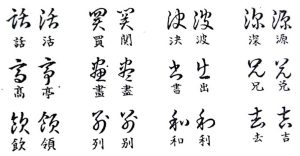 話活 買関 決波 深源
話活 買関 決波 深源
高亭 畫盡 書出 兄兌
高亭 畫盡 書出 兄兌
欽領 列別 和利 去吉
欽領 列別 和利 去吉